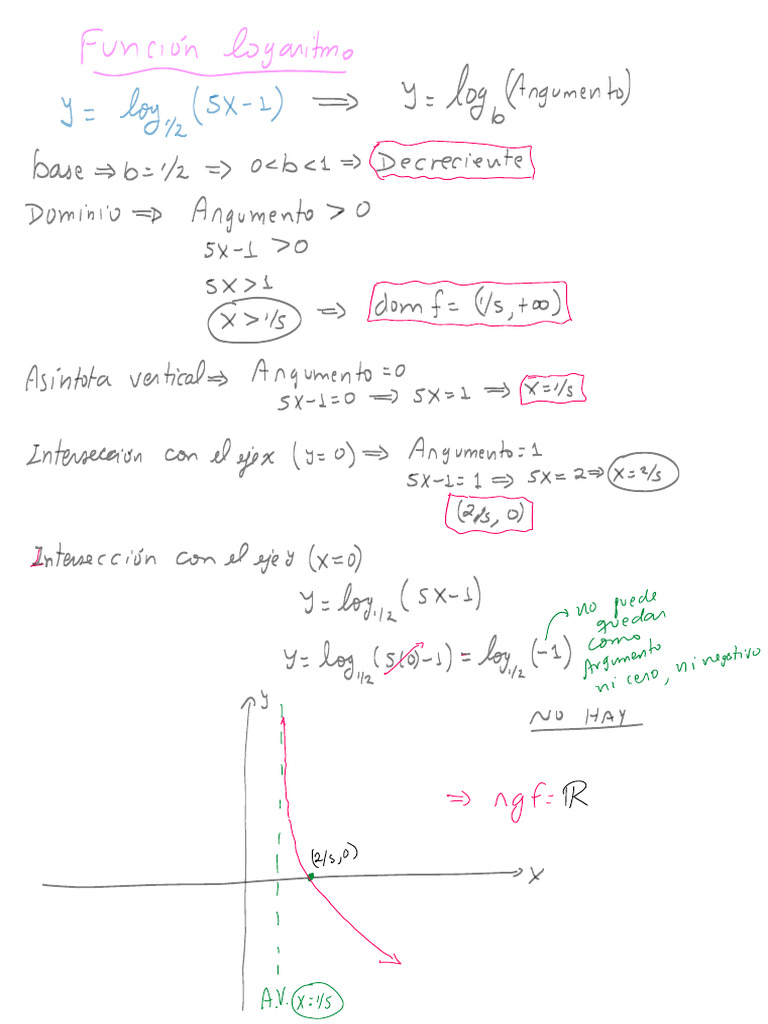 Función logaritmo
y = log_{1/2} (5x-1) ⇒ y = log_b (Argumento)
base ⇒ b = 1/2 ⇒ 0<b<1 ⇒ Decreciente
Dominio ⇒ Argumento > 0
5x-1 > 0
5x > 1
x > 1/5 ⇒ dom f = (1/5, +∞)
Asíntota vertical ⇒ Argumento = 0
5x-1=0 ⇒ 5x=1 ⇒ x=1/5
Intersección con el eje x (y=0) ⇒ Argumento = 1
5x-1=1 ⇒ 5x=2 ⇒ x=2/5
(2/5, 0)
Intersección con el eje y (x=0)
y = log_{1/2} (5x-1)
y = log_{1/2} (5(0)-1) = log_{1/2} (-1)
no puede
quedar
como
Argumento
ni cero, ni negativo
NO HAY
y
⇒ rgf = ℝ
(2/5, 0)
x
A.V. x=1/5